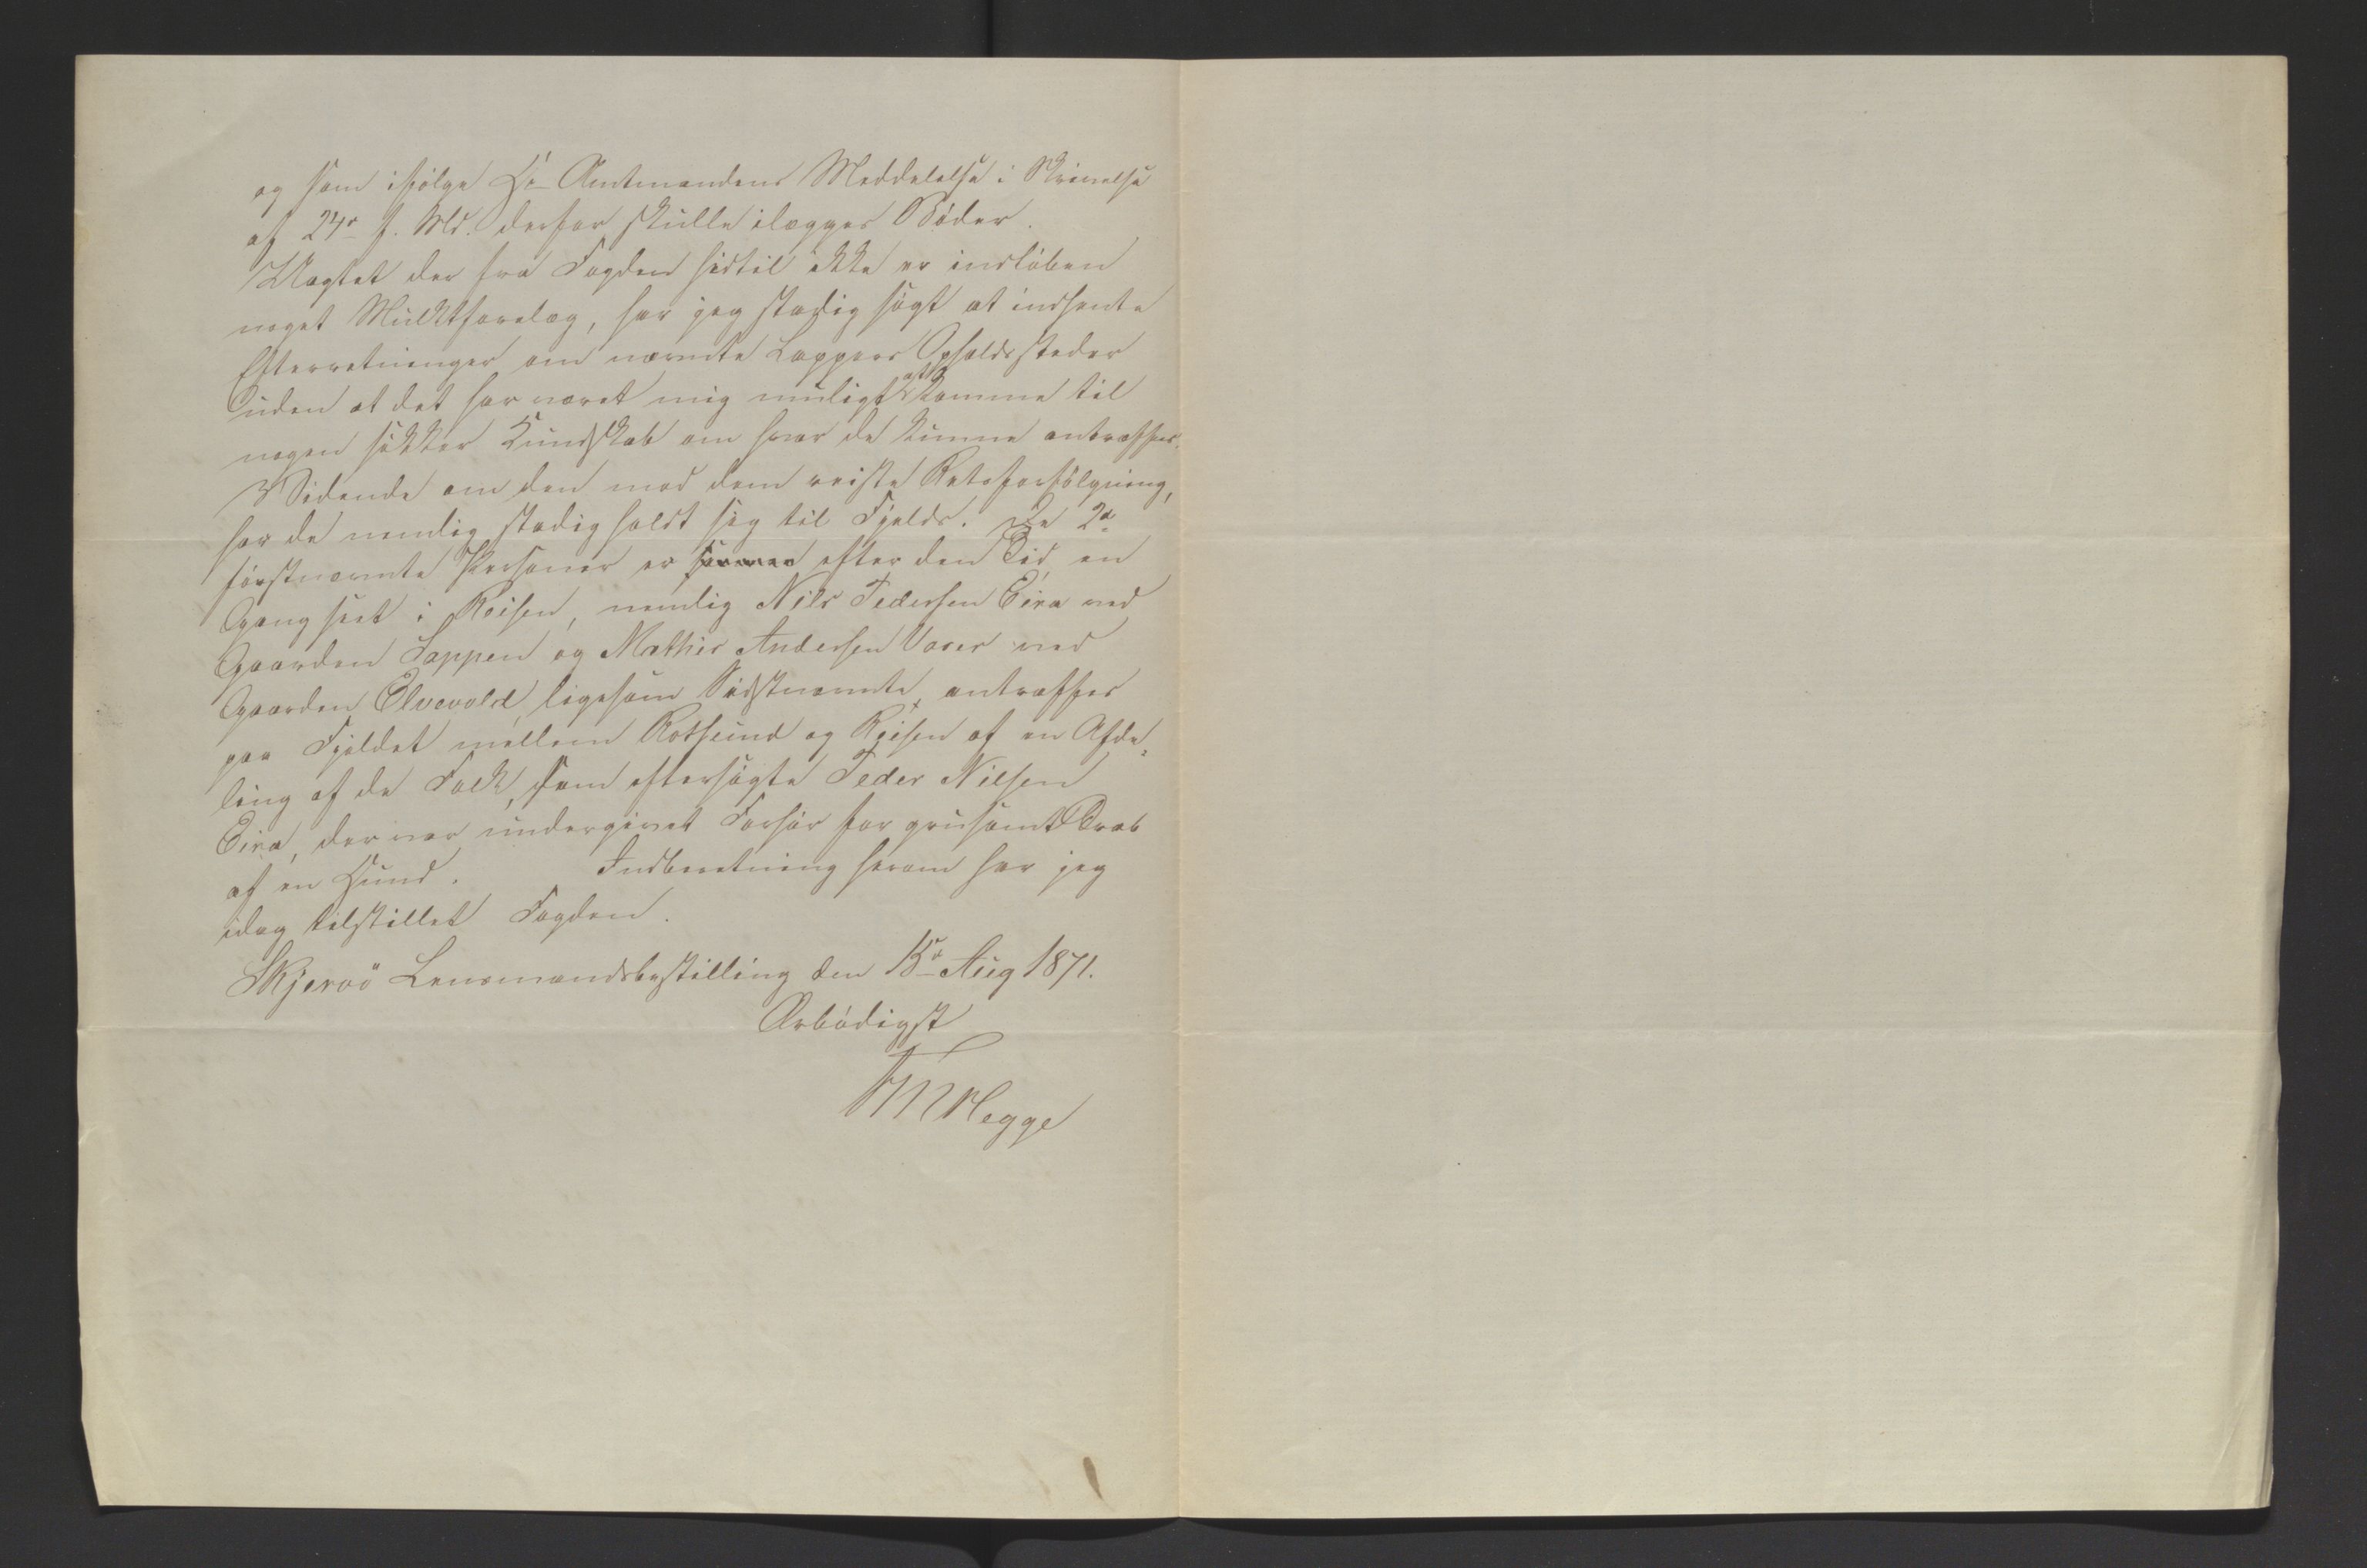 og som ifölge Hr Amtmandens Meddelelse i Skrivelse
af 24de f. Md. derfor skulle ilægges Böder.
Uagtet der fra Fogden hidtil ikke er indlöben
noget Mulktforelæg, har jeg stadig sögt at indhente
Efterretninger om nævnte Lappers Opholdssteder
uden at det har været mig muligt at komme til
nogen sikker Kundskab om hvor de kunne antræffes.
Vidende om den mod dem reiste Retsforfölgning,
har de nemlig stadig holdt sig til Fjelds. De 2de
förstnævnte Personer er efter den Tid en
Gang seet i Reisen, nemlig Nils Pedersen Eira ved
Gaarden Sappen og Mathis Andersen Vaser ved
Gaarden Elvevold, ligesom Sidstnævnte antræffes
paa Fjeldet mellem Rotsund og Reisen af en Afde-
ling af de Folk, som eftersögte Peder Nilsen
Eira, der var undergivet Forhör for grusomt Drab
af en Hund. Indberetning herom har jeg
idag tilstillet Fogden.
Skjervö Lensmandsbestilling den 15de Aug 1871.
Ærbödigst
Hegge